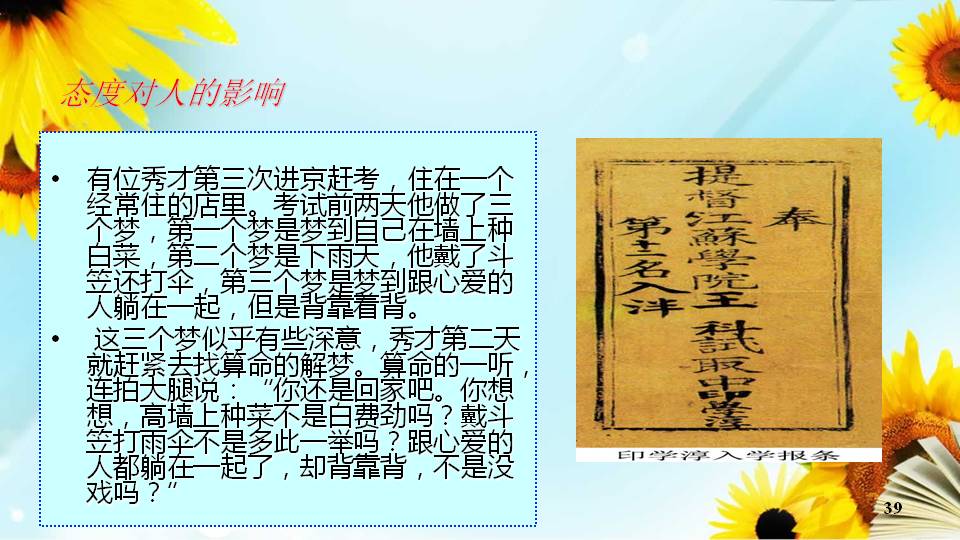 态度对人的影响
• 有位秀才第三次进京赶考，住在一个
经常住的店里。考试前两天他做了三
个梦，第一个梦是梦到自己在墙上种
白菜，第二个梦是下雨天，他戴了斗
笠还打伞，第三个梦是梦到跟心爱的
人躺在一起，但是背靠着背。
• 这三个梦似乎有些深意，秀才第二天
就赶紧去找算命的解梦。算命的一听，
连拍大腿说：“你还是回家吧。你想
想，高墙上种菜不是白费劲吗？戴斗
笠打雨伞不是多此一举吗？跟心爱的
人都躺在一起了，却背靠背，不是没
戏吗？”
奉
提督江蘇學院王 科試取中印學淳
第十二名入泮
印学淳入学报条
39